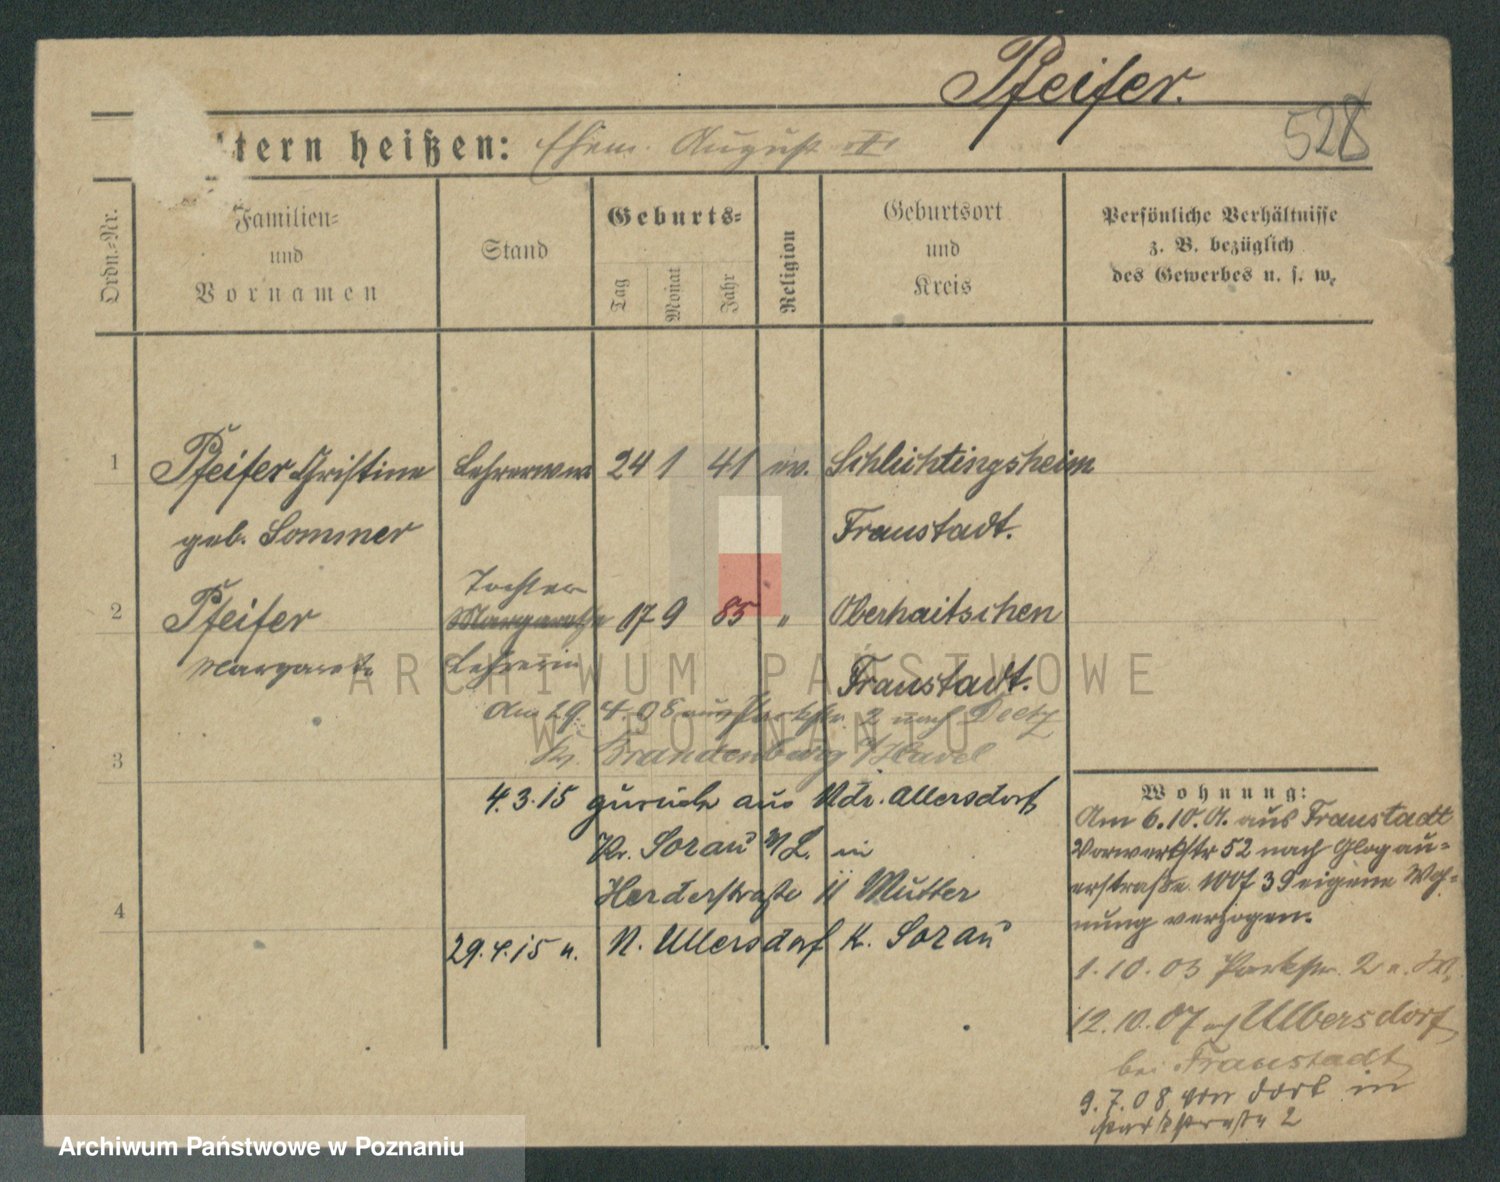 Pfeifer.
528
tern heißen: Ehem. August
Ordn.-Nr.
Familien-
und
Vornamen
Stand
Geburts-
Tag
Monat
Jahr
Religion
Geburtsort
und
Kreis
Persönliche Verhältnisse
z. B. bezüglich
des Gewerbes u. s. w.
1 Pfeifer Christine Lehrerwwe 24 1 41 ev. Schlichtingsheim
geb. Sommer Fraustadt.
Tochter
2 Pfeifer Margarethe 17 9 85 " Oberhaitschen
Margarete Lehrerin
Fraustadt.
Am 29. 4. 08 aus Parkstr. 2 nach Deetz
Kr. Brandenburg a/Havel
3
4.3.15 zurück aus Ndr. Ullersdorf
Kr. Sorau N/L. in
Herderstraße 11 Mutter
4
29.4.15 n. N. Ullersdorf K. Sorau
Wohnung:
Am 6.10.01. aus Fraustadt
Vorwerkstr 52 nach Glogau-
erstraße 39 eigene Woh-
nung verzogen.
1.10.03 Parkstr. 2 e. W.
12.10.07 nach Ulbersdorf
bei Fraustadt
9.7.08 von dort in
Parkstraße 2
ARCHIWUM PAŃSTWOWE
W POZNANIU
Archiwum Państwowe w Poznaniu